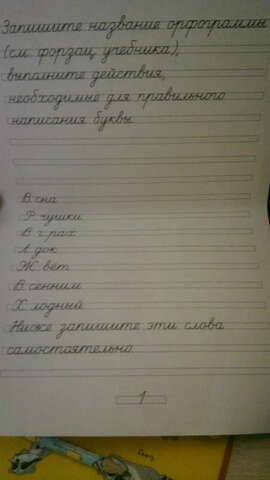 Запишите название орфограммы
(см. форзац учебника),
выполните действия,
необходимые для правильного
написания буквы.
В сна
Р чушки
В г рах
Л док
Ж вёт
В сенним
Х лодный
Ниже запишите эти слова
самостоятельно.
1